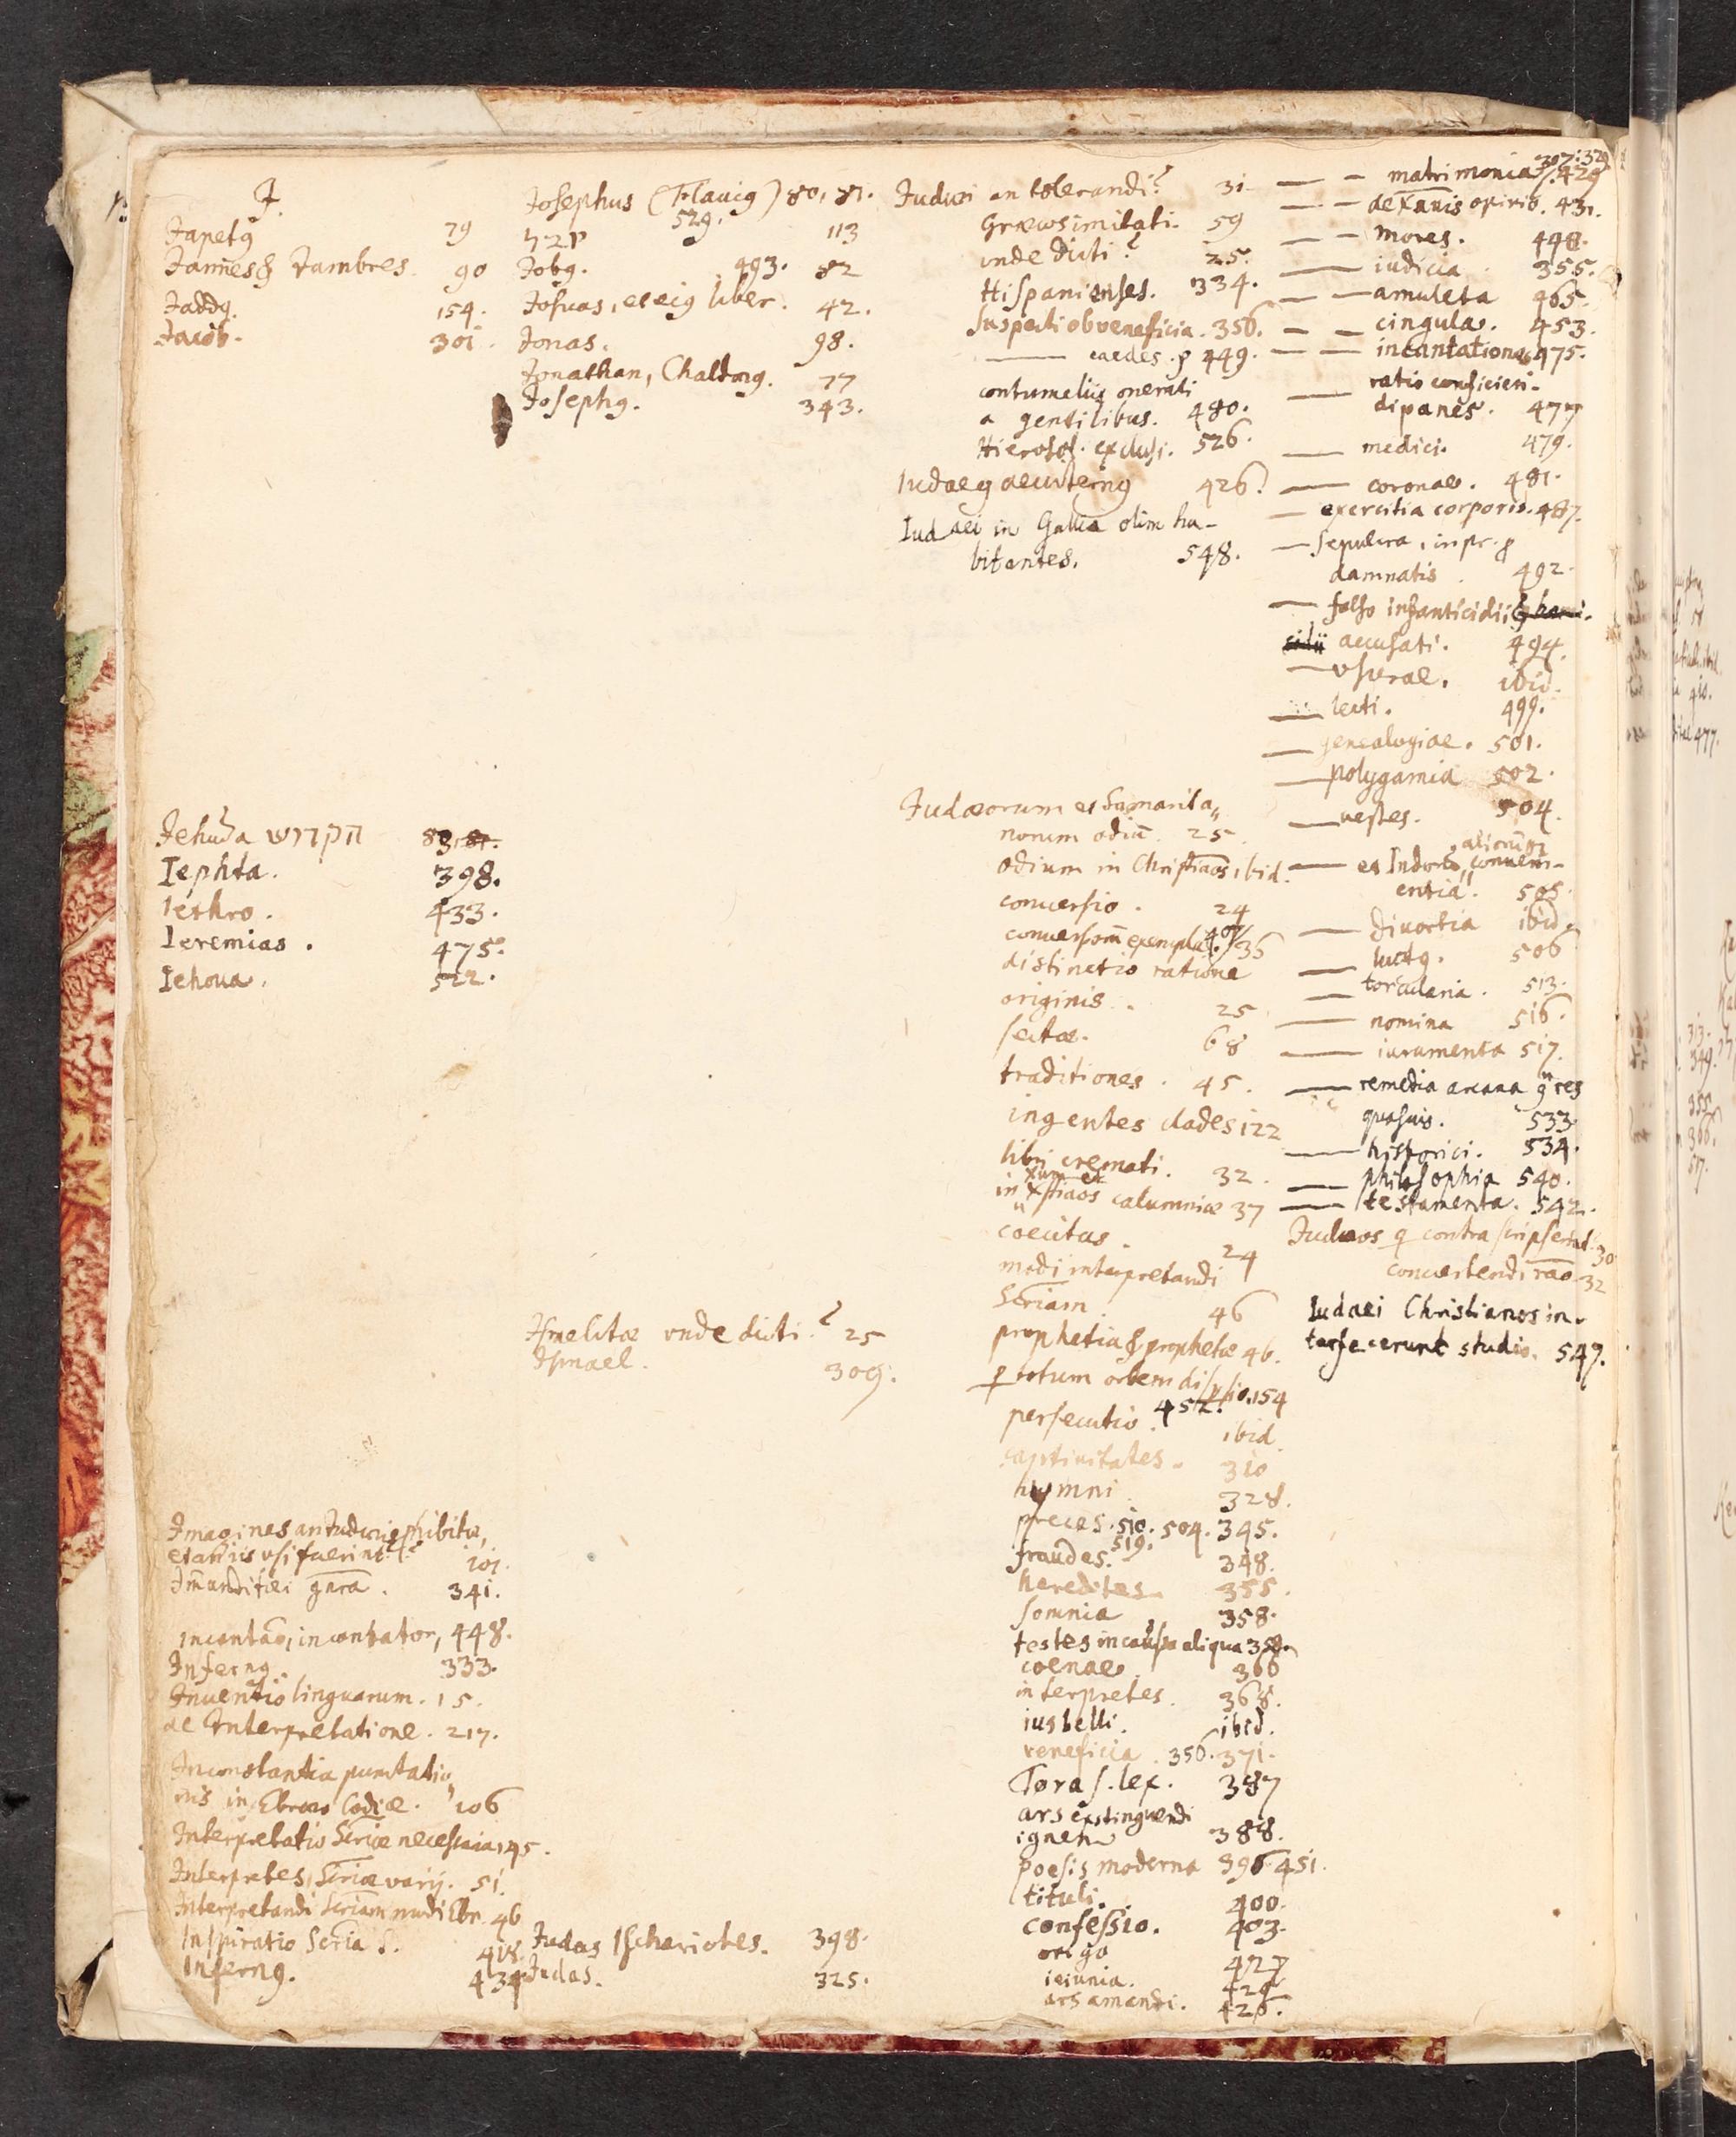 J.
Japetꝰ 79
Jannes & Jambres. 90
Jaddꝰ. 154.
Jacob. 301.
Jehuda הקדוש 83,
Iephta. 398.
Iethro. 433.
Ieremias. 475.
Iehoua. 522.
Imagines an Judæis
et an iis usi fuerint? 101.
341.
incantatio, incantator, 448.
Infernꝰ. 333.
Inuentio linguarum. 15.
de Interpretatione. 217.
Inconstantia punctatio„
nis in Ebræo Codice. 106
Interpretatio Scriæ necessaria 145.
Interpretes Scriæ varij. 51.
Interpretandi Scriam modi Ebr. 46
Inspiratio Scria S. 418.
Infernꝰ. 434
Josephus (Flauiꝰ) 80, 81.
529.
קבלה 113
Jobꝰ. 493. 82
Josuas, et eiꝰ liber. 42.
Jonas. 98.
Jonathan, Chaldæꝰ. 77
Josephꝰ. 343.
Ismelitæ unde dicti? 25
Ismael. 309.
Judas Ischariotes. 398.
Judas. 325.
Judæi an tolerandi? 31.
Græcos imitati. 59
unde dicti? 25.
Hispanienses. 334.
suspecti ob veneficia. 356.
—— caedes. 449.
contumeliis onerati
a gentilibus. 480.
Hierosol. exclusi. 526.
Iudaeꝰ aeuiternꝰ 426.
Iudaei in Gallia olim ha-
bitantes. 548.
Judæorum et Samarita„
norum odiū. 25
odium in Christiaos ibid.
conuersio. 24
conuersorū exempla 407/36
distinctio ratione
originis. 25
sectæ. 68
traditiones. 45.
ingentes clades 122
libri cremati. 32.
in Xstiaos calumniæ 37
coecitas. 24
modi interpretandi
Scriam. 46
prophetia & prophetæ 46.
ꝑ totum orbem dispsio. 154
persecutio. 452. ibid.
captiuitates. 310
hymni 328.
preces. 510. 504. 345.
519.
fraudes. 348.
heredites. 355.
somnia 358.
testes in causa aliqua 358.
coenae. 366
interpretes. 368.
ius belli. ibid.
veneficia. 356. 371.
Tora s. lex. 387
ars exstinguendi
ignem 388.
poesis moderna 396 451.
tituli. 400.
confessio. 403.
origo 427
ieiunia. 429
ars amandi. 426.
— — matrimonia 307. 329
429
— — opinio. 431.
— — mores. 448.
—— iudicia. 355.
— — amuleta 465.
— — cingula. 453.
— — incantationes 475.
—— ratio conficien-
di panes. 477
—— medici. 479.
—— coronae. 481.
— exercitia corporis. 487.
— sepulcra, inpr.
damnatis. 492.
— falso infanticidii
accusati. 494.
— usurae. ibid.
— lecti. 499.
— genealogiae. 501.
— polygamia 502.
— vestes. 504.
—— et Indorū, conueni-
entia. 505.
—— diuortia ibid.
— luctꝰ. 506
— torcularia. 513.
—— nomina 516.
—— iuramenta 517.
—— remedia arcana res
quasuis. 533.
—— historici. 534.
— philosophia 540.
—— testamenta. 542.
Judæos q contra scripserint 30
conuertendi rāo 32
Iudaei Christianos in-
terfecerunt studio. 547.